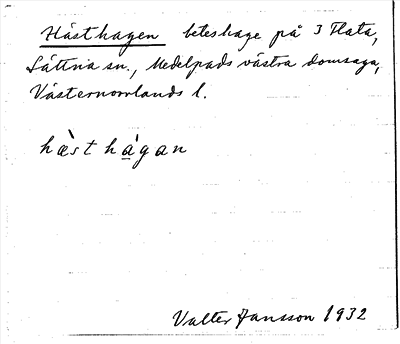 Hästhagen beteshage på 3 Flata,
Sättna sn., Medelpads västra domsaga,
Västernorrlands l.
hæ̀st hà̲gan
Valter Jansson 1932